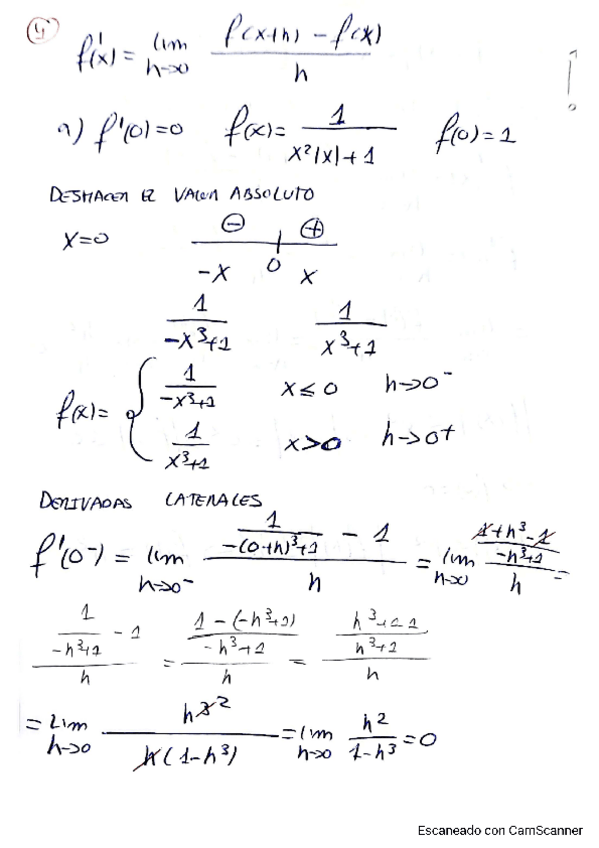 4)
f'(x) = lim h→0 f(x+h) - f(x) / h
a) f'(0)=0 f(x)= 1 / x²|x|+1 f(0)=1
DESHACER EL VALOR ABSOLUTO
x=0 ⊖ ⊕
-x 0 x
1 / -x³+1 1 / x³+1
f(x)= { 1 / -x³+1 x≤0 h→0⁻
1 / x³+1 x>0 h→0+
DERIVADAS LATERALES
f'(0⁻) = lim h→0⁻ 1 / -(0+h)³+1 - 1 / h = lim h→0 1+h³-1 / -h³+1 / h =
1 / -h³+1 - 1 / h = 1-(-h³+1) / -h³+1 / h = / h³+1 / h
= Lim h→0 h³ ² / h(1-h³) = lim h→0 h² / 1-h³ = 0
Escaneado con CamScanner